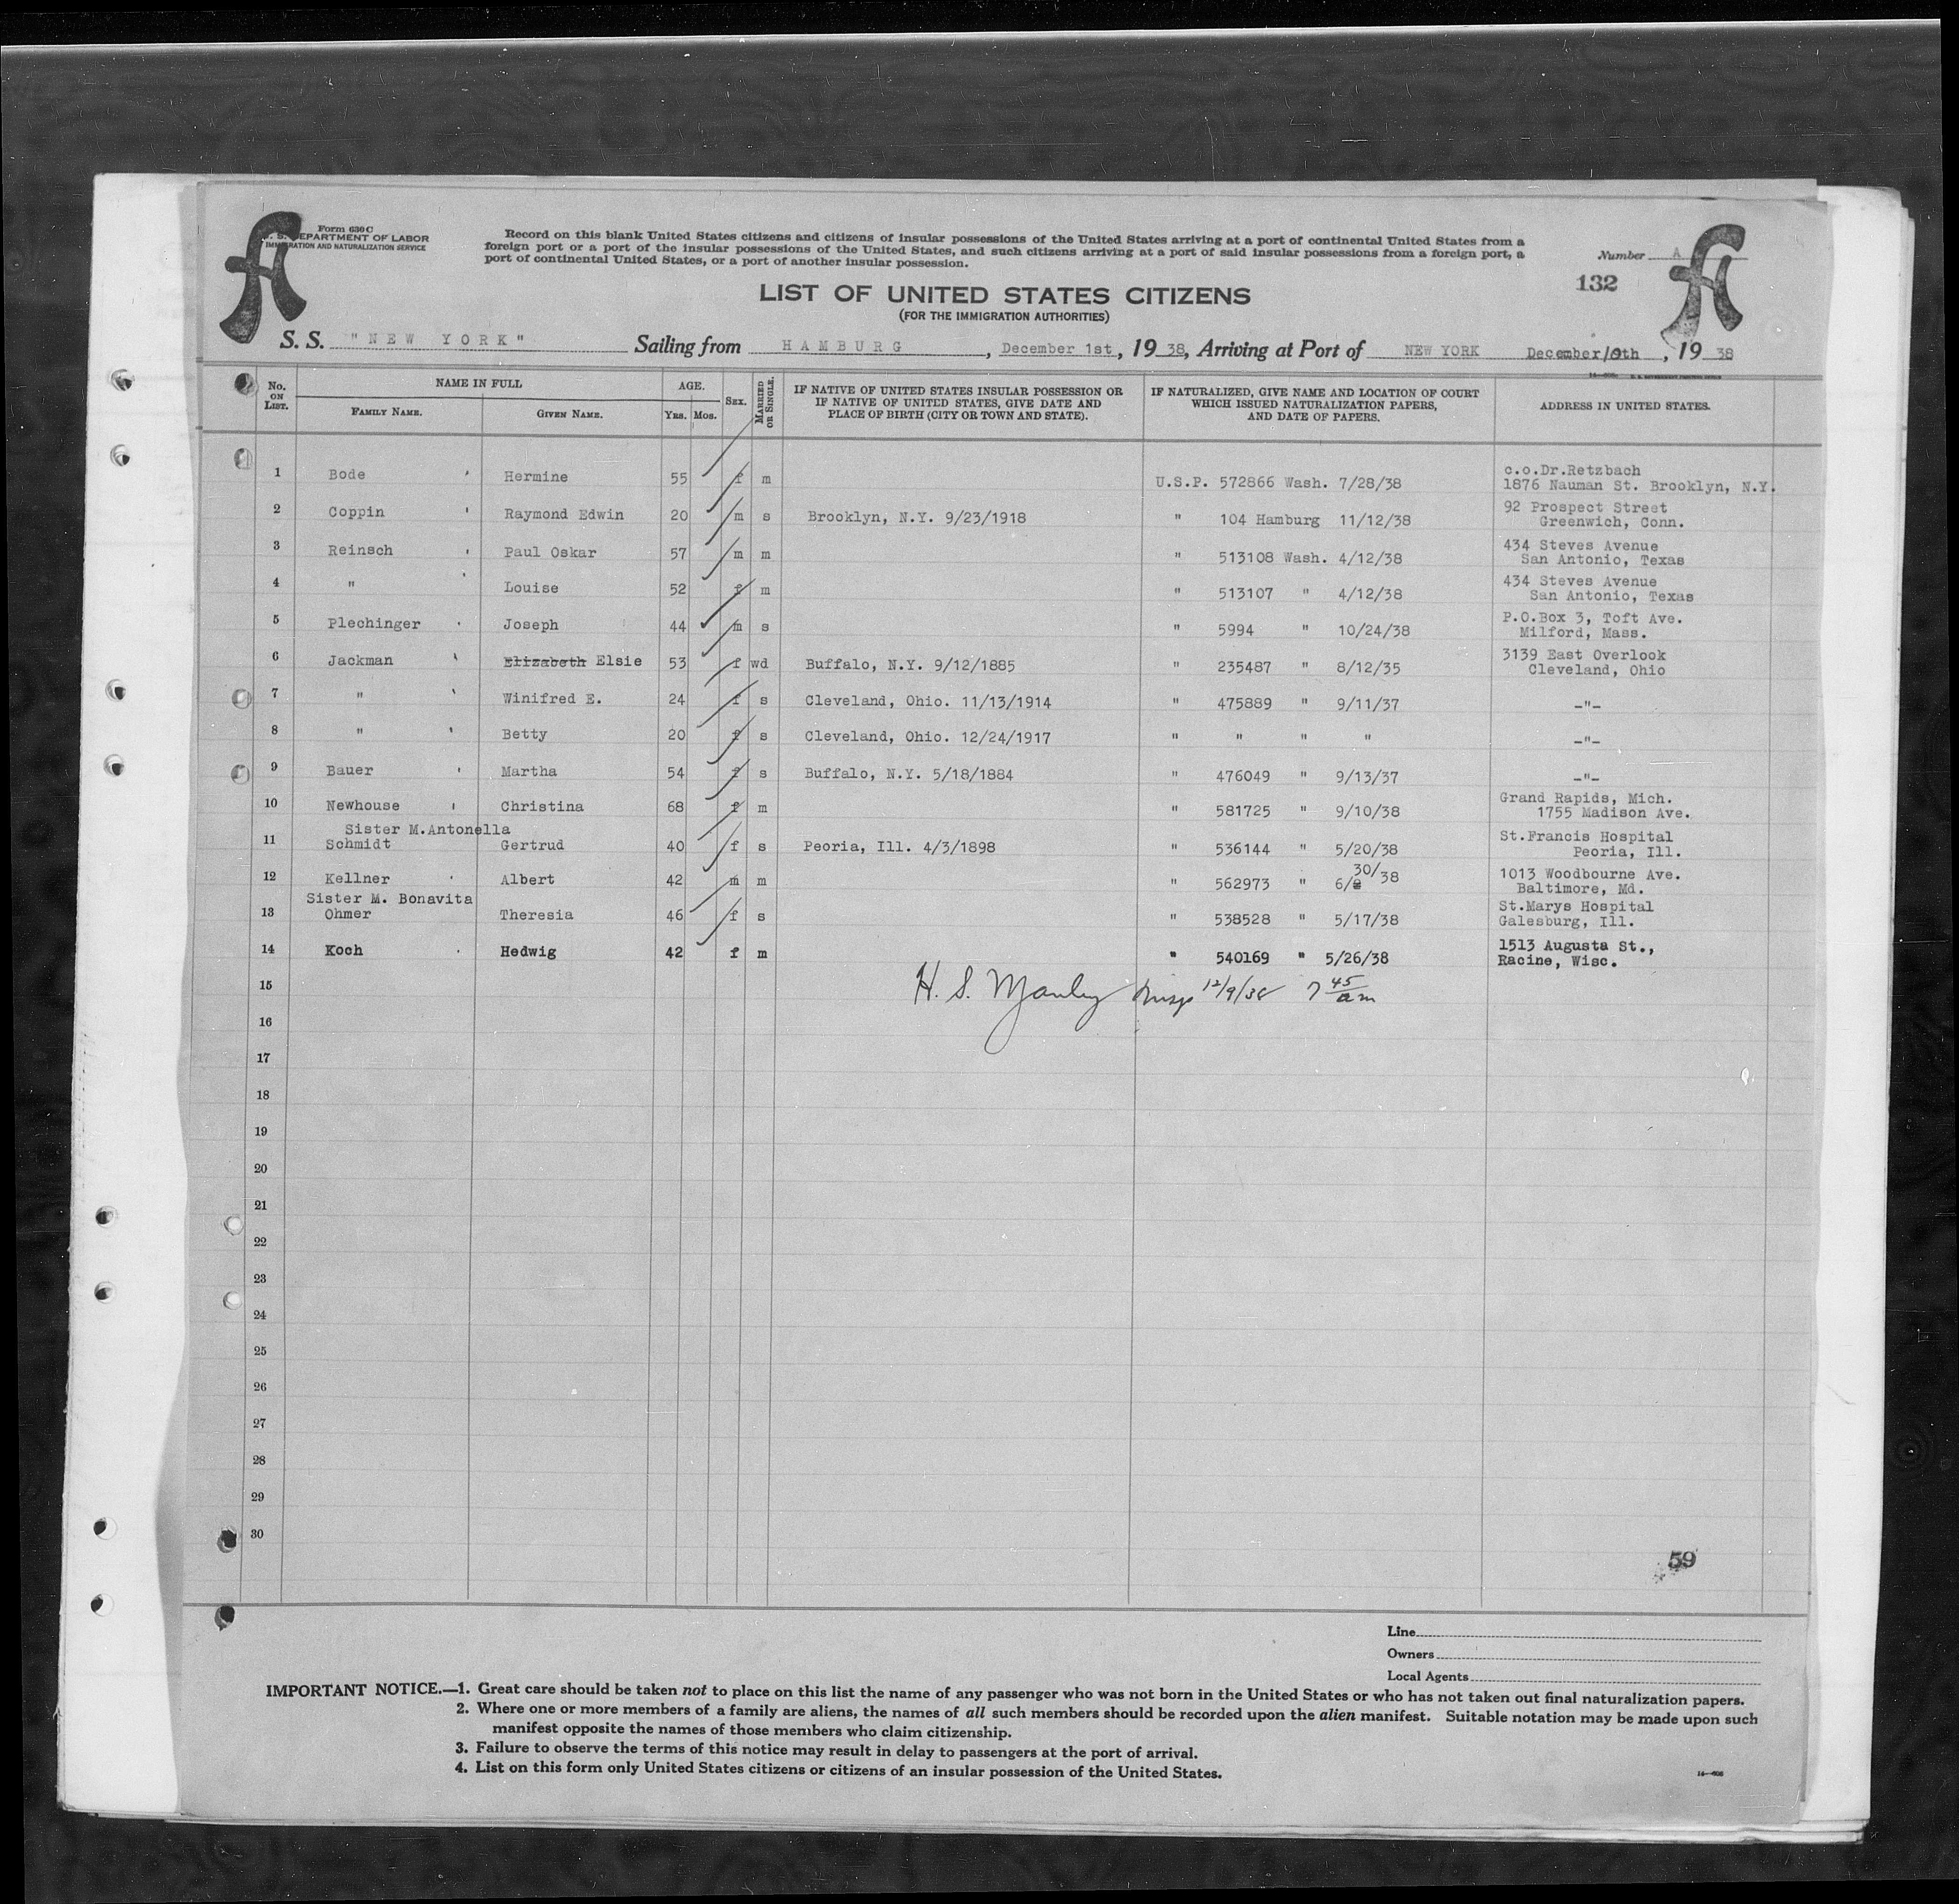 A
A
Form 630 C
U. S. DEPARTMENT OF LABOR
IMMIGRATION AND NATURALIZATION SERVICE
Record on this blank United States citizens and citizens of insular possessions of the United States arriving at a port of continental United States from a
foreign port or a port of the insular possessions of the United States, and such citizens arriving at a port of said insular possessions from a foreign port, a
port of continental United States, or a port of another insular possession.
Number A
132
LIST OF UNITED STATES CITIZENS
(FOR THE IMMIGRATION AUTHORITIES)
S. S. "NEW YORK" Sailing from HAMBURG, December 1st, 19 38, Arriving at Port of NEW YORK December 9th, 19 38
No. ON LIST. NAME IN FULL AGE. SEX. MARRIED OR SINGLE. IF NATIVE OF UNITED STATES INSULAR POSSESSION OR IF NATIVE OF UNITED STATES, GIVE DATE AND PLACE OF BIRTH (CITY OR TOWN AND STATE). IF NATURALIZED, GIVE NAME AND LOCATION OF COURT WHICH ISSUED NATURALIZATION PAPERS, AND DATE OF PAPERS. ADDRESS IN UNITED STATES.
FAMILY NAME. GIVEN NAME. YRS. MOS.
1 Bode Hermine 55 f m U.S.P. 572866 Wash. 7/28/38 c.o.Dr.Retzbach
1876 Nauman St. Brooklyn, N.Y.
2 Coppin Raymond Edwin 20 m s Brooklyn, N.Y. 9/23/1918 " 104 Hamburg 11/12/38 92 Prospect Street
Greenwich, Conn.
3 Reinsch Paul Oskar 57 m m " 513108 Wash. 4/12/38 434 Steves Avenue
San Antonio, Texas
4 " Louise 52 f m " 513107 " 4/12/38 434 Steves Avenue
San Antonio, Texas
5 Plechinger Joseph 44 m s " 5994 " 10/24/38 P.O.Box 3, Toft Ave.
Milford, Mass.
6 Jackman Elizabeth Elsie 53 f wd Buffalo, N.Y. 9/12/1885 " 235487 " 8/12/35 3139 East Overlook
Cleveland, Ohio
7 " Winifred E. 24 f s Cleveland, Ohio. 11/13/1914 " 475889 " 9/11/37 -"-
8 " Betty 20 f s Cleveland, Ohio. 12/24/1917 " " " " -"-
9 Bauer Martha 54 f s Buffalo, N.Y. 5/18/1884 " 476049 " 9/13/37 -"-
10 Newhouse Christina 68 f m " 581725 " 9/10/38 Grand Rapids, Mich.
1755 Madison Ave.
Sister M.Antonella
11 Schmidt Gertrud 40 f s Peoria, Ill. 4/3/1898 " 536144 " 5/20/38 St.Francis Hospital
Peoria, Ill.
12 Kellner Albert 42 m m " 562973 " 6/30/38 1013 Woodbourne Ave.
Baltimore, Md.
Sister M. Bonavita
13 Ohmer Theresia 46 f s " 538528 " 5/17/38 St.Marys Hospital
Galesburg, Ill.
14 Koch Hedwig 42 f m " 540169 " 5/26/38 1513 Augusta St.,
Racine, Wisc.
15 H. S. Manley 12/9/38 7 45 am
16
17
18
19
20
21
22
23
24
25
26
27
28
29
30
59
Line
Owners
Local Agents
IMPORTANT NOTICE.—1. Great care should be taken not to place on this list the name of any passenger who was not born in the United States or who has not taken out final naturalization papers.
2. Where one or more members of a family are aliens, the names of all such members should be recorded upon the alien manifest. Suitable notation may be made upon such
manifest opposite the names of those members who claim citizenship.
3. Failure to observe the terms of this notice may result in delay to passengers at the port of arrival.
4. List on this form only United States citizens or citizens of an insular possession of the United States.